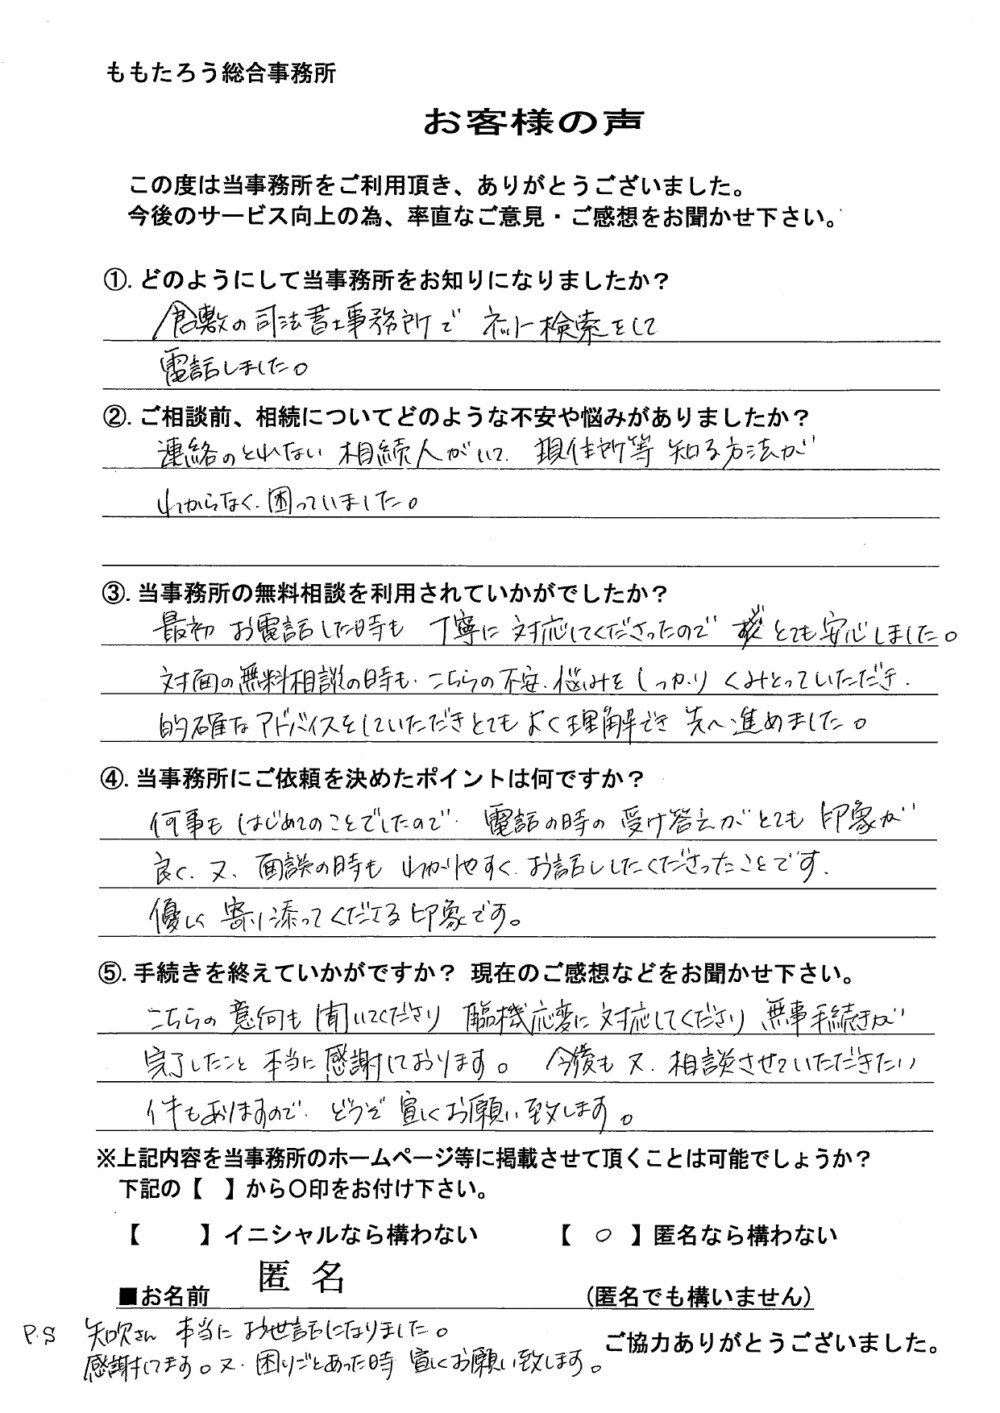 ももたろう総合事務所
お客様の声
この度は当事務所をご利用頂き、ありがとうございました。
今後のサービス向上の為、率直なご意見・ご感想をお聞かせ下さい。
①. どのようにして当事務所をお知りになりましたか？
倉敷の司法書士事務所で ネット検索をして
電話しました。
②. ご相談前、相続についてどのような不安や悩みがありましたか？
連絡のとれない 相続人がいて、現住所等 知る方法が
わからなく、困っていました。
③. 当事務所の無料相談を利用されていかがでしたか？
最初 お電話した時も 丁寧に 対応してくださったので とても安心しました。
対面の無料相談の時も、こちらの不安、悩みを しっかり くみとっていただき、
的確なアドバイスをしていただきとても よく理解でき 先へ進めました。
④. 当事務所にご依頼を決めたポイントは何ですか？
何事も はじめてのことでしたので、電話の時の 受け答えが とても 印象が
良く、又、面談の時も わかりやすく、お話ししたくださったことです、
優しく 寄り添ってくださる 印象です。
⑤. 手続きを終えていかがですか？ 現在のご感想などをお聞かせ下さい。
こちらの 意向も 聞いてくださり 臨機応変に 対応してくださり 無事手続きが
完了したこと 本当に 感謝しております。 今後も 又、相談させていただきたい
件もありますので、どうぞ 宜しくお願い致します。
※上記内容を当事務所のホームページ等に掲載させて頂くことは可能でしょうか？
下記の【 】から〇印をお付け下さい。
【 】イニシャルなら構わない 【 ○ 】匿名なら構わない
■お名前 匿名 (匿名でも構いません)
P.S 知吹さん 本当に お世話になりました。
ご協力ありがとうございました。
感謝してます。又、困りごとあった時 宜しくお願い致します。